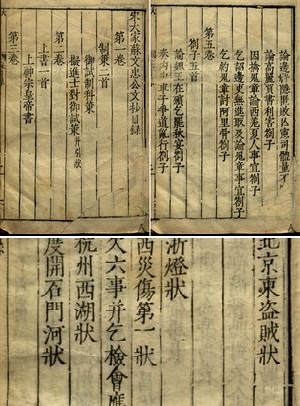 宋大家蘇文忠公文抄目録
第一卷
制策二首
御試制科策
擬進士對御試策并引狀
第二卷
上書一首
上神宗皇帝書
第三卷
論邊將隱匿敗亡憲司體量不
論高麗買書利害劄子
因擒鬼章論西羌夏人事宜劄子
乞詔邊吏無進取及論鬼章事宜劄子
乞約鬼章討阿里骨劄子
第五卷
劄子五首
論魏王在殯乞罷秋宴劄子
奏內中車子爭道亂行劄子
北京東盜賊狀
浙燈狀
西災傷第一狀
六事并乞檢會應
杭州西湖狀
度開石門河狀